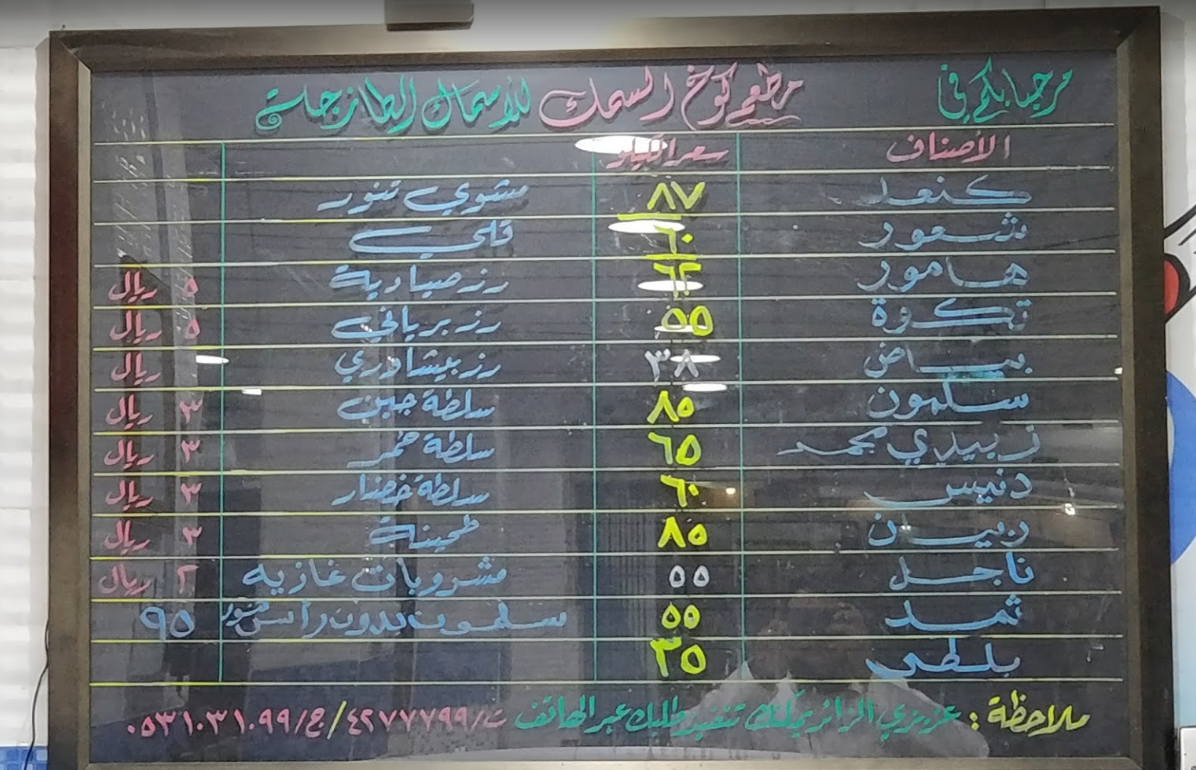 مرحبا بكم في مطعم كوخ السمك للأسماك الطازجة
الأصناف سعر الكيلو
كنعد ٨٧ مشوي تنور
شعور ٦٠ قلي
هامور ٦٢ رز صيادية ٥ ريال
تكوة ٥٥ رز برياني ٥ ريال
بياض ٣٨ رز بيشاوري ريال
سلمون ٨٥ سلطة جبن ٣ ريال
زبيدي مجمد ٦٥ سلطة حمر ٣ ريال
دنيس ٦٠ سلطة خضار ٣ ريال
ربيان ٨٥ طحينة ٣ ريال
ناجل ٥٥ مشروبات غازيه ٢ ريال
ثمد ٥٥ سلمون بدون راس ٩٥
بلطي ٣٥
ملاحظة : عزيزي الزائر يمكنك تنفيذ طلبك عبر الهاتف ت/٤٢٧٧٧٩٩ /ج/٠٥٣١٠٣١٠٩٩